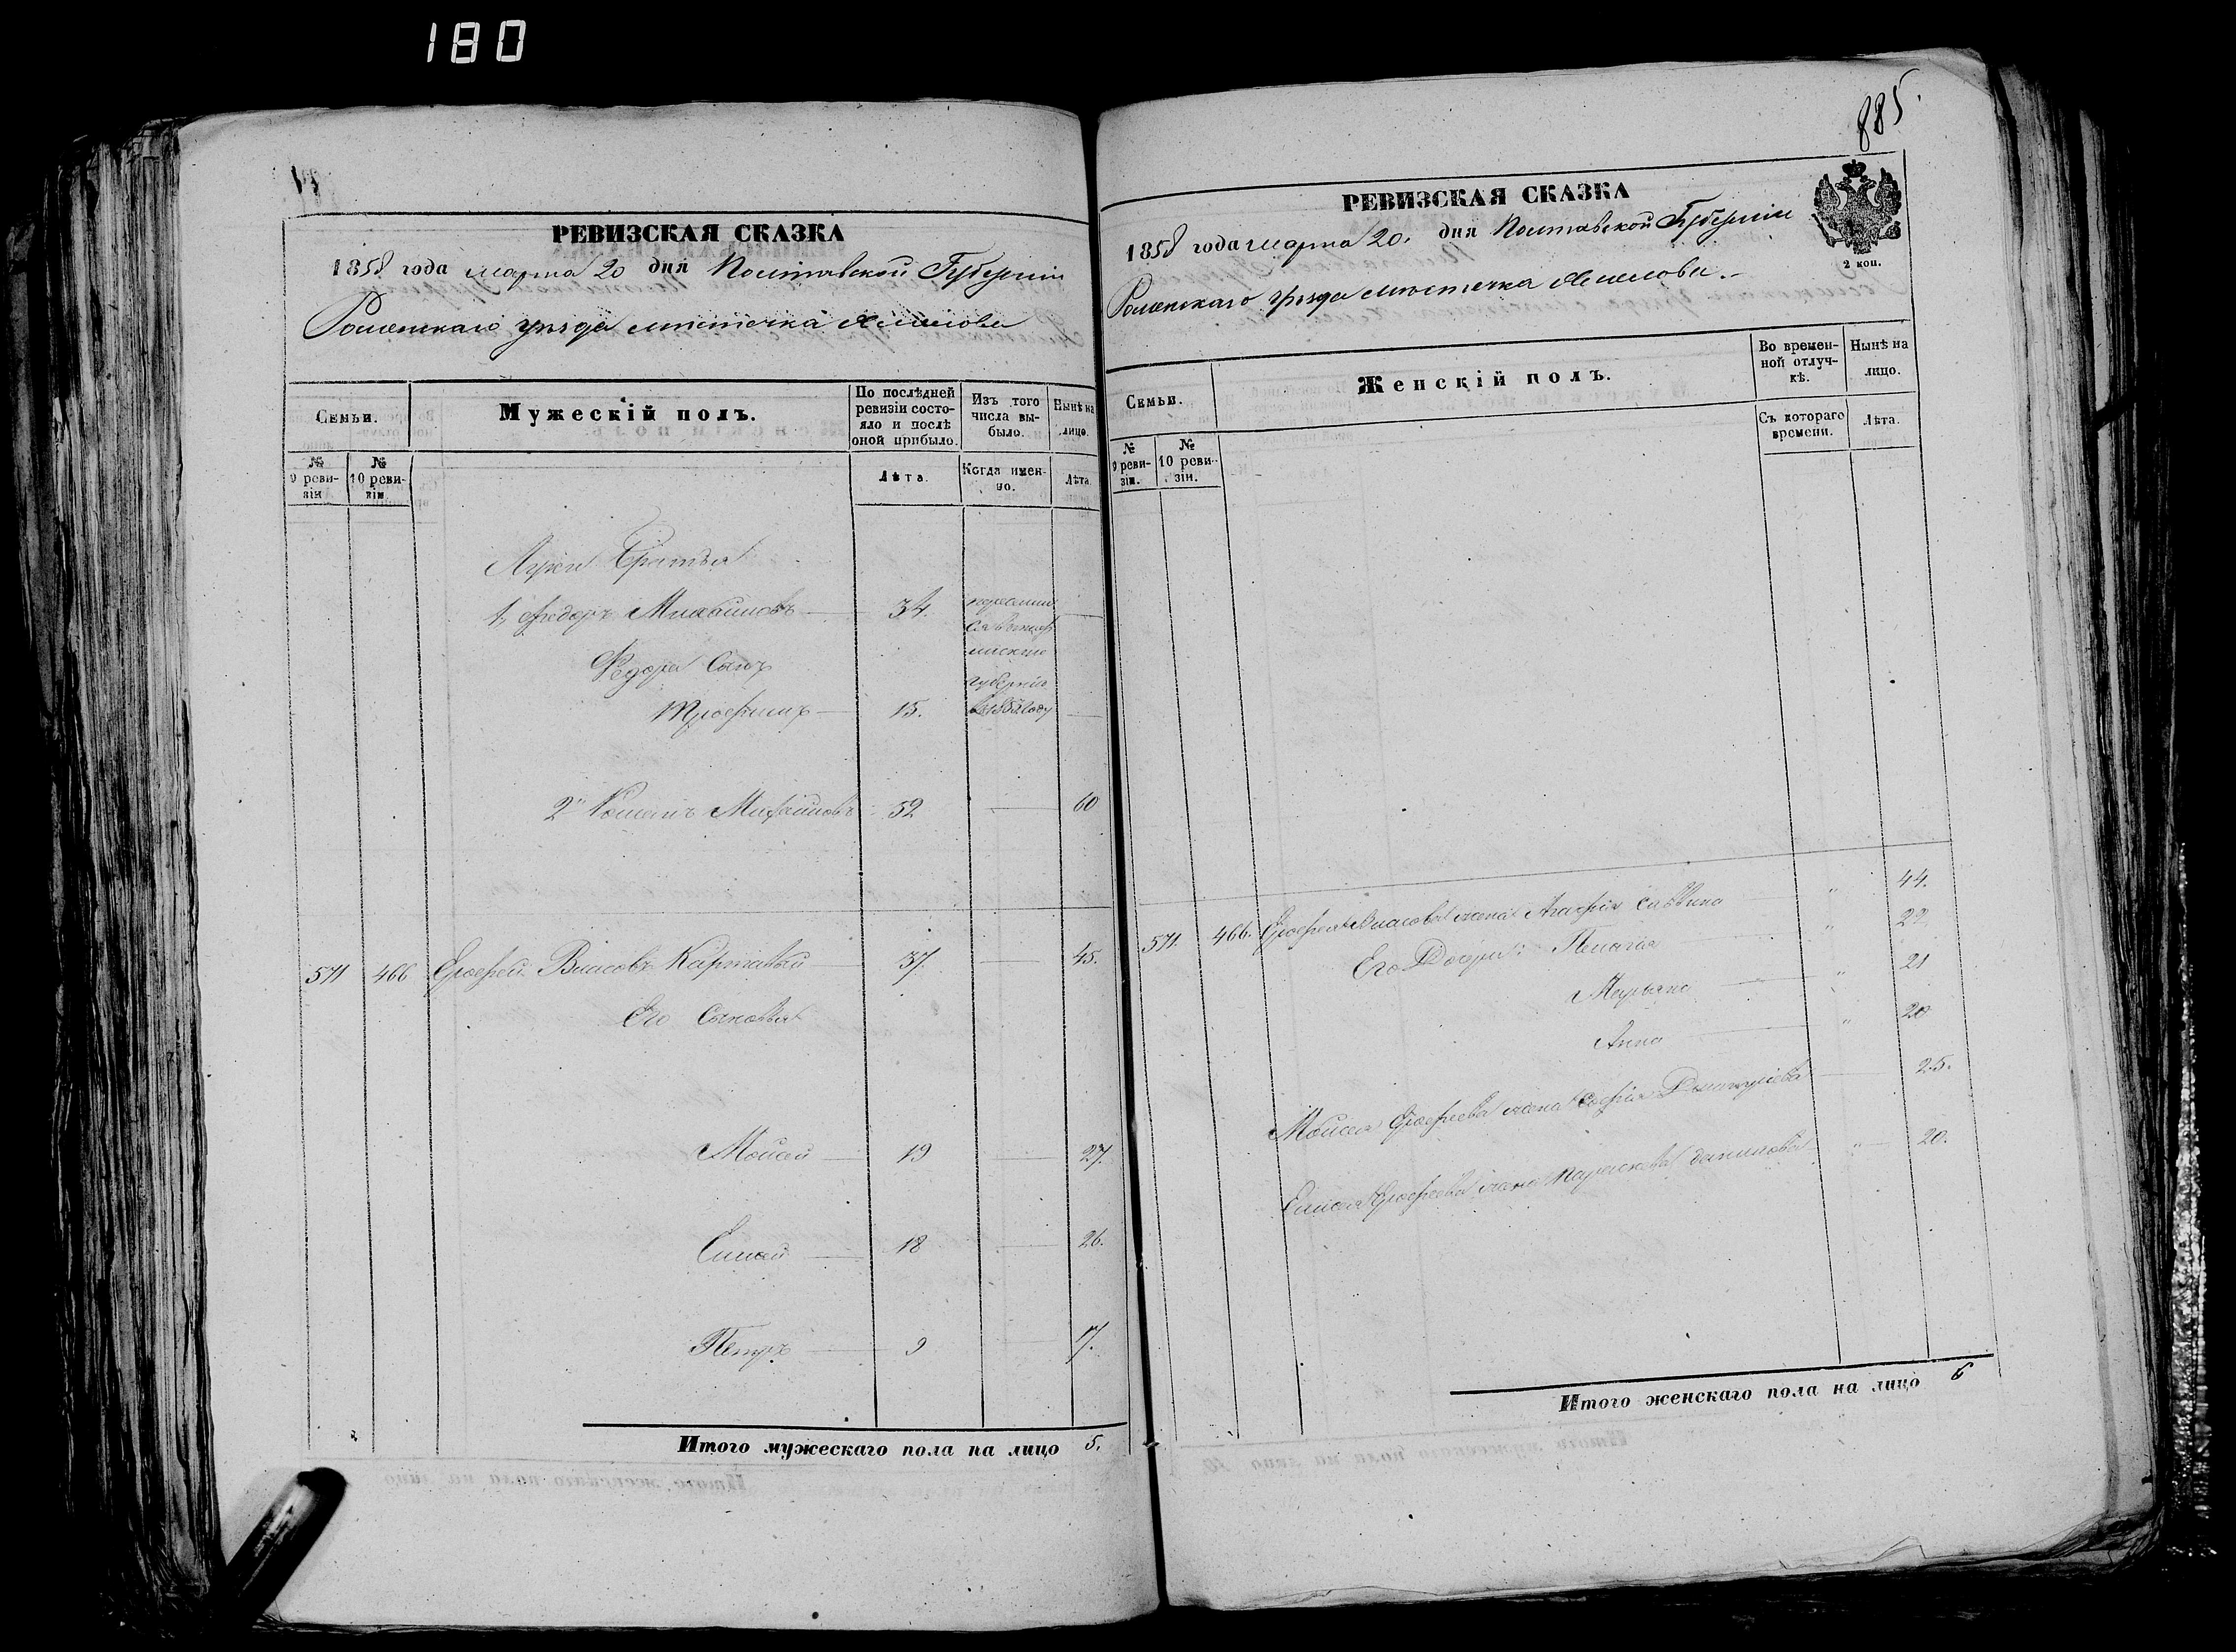 180
885.
РЕВИЗСКАЯ СКАЗКА
1858 года марта 20 дня Полтавской Губерніи
Роменскаго уѣзда мѣстечка Хмелова
Семьи.
Мужескій полъ.
По послѣдней ревизіи состояло и послѣ оной прибыло.
Изъ того числа выбыло.
Нынѣ на лицо.
№ 9 ревизіи
№ 10 ревизіи
Лѣта.
Когда именно.
Лѣта.
Луки Братья
1, Федоръ Михайловъ 34.
Федора Сынъ
Трофимъ 15.
губерніи
2 Романъ Михайловъ 52 60
571 466 Ерофей Власовъ Картавый 37. 45.
Его Сыновья
Мойсей 19 27.
Елисей 18 26.
Петръ 9 17.
Итого мужескаго пола на лицо 5.
РЕВИЗСКАЯ СКАЗКА
1858 года марта 20. дня Полтавской Губерніи
Роменскаго уѣзда мѣстечка Хмелова.
2 коп.
Семьи.
Женскій полъ.
Во временной отлучкѣ.
Нынѣ на лицо.
№ 9 ревизіи.
№ 10 ревизіи.
Съ котораго времени.
Лѣта.
571. 466. Ерофея Власова жена Агафія Саввина " 44.
Его Дочери: Пелагія " 22
Марьяна " 21
Анна " 20
Мойсея Ерофеева жена Софія Дмитріева 25.
Елисея Ерофеева жена Параскева Данилова " 20.
Итого женскаго пола на лицо 6